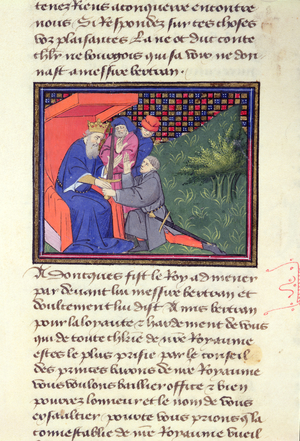 tenez Riens aconquerre encontre
nous. Si Respondez sur ces choses
voz plaisances. La ne ot duc conte
chlr ne bourgois qui sa voix ne don-
nast a messire bertran.
Adoncques fist le Roy admener
par devant lui messire bertran et
doulcement lui dist. Amis bertran
pour la loyaute et hardement de vous
qui de toute chlrie de nre Royaume
estes le plus prisie par le conseil
des princes barons de nre Royaume
vous voulons baillier office et bien
povez lonneur et le nom de vous
exsaulcier pourtant vous prions que la
connestablie de nre Royaume vueil